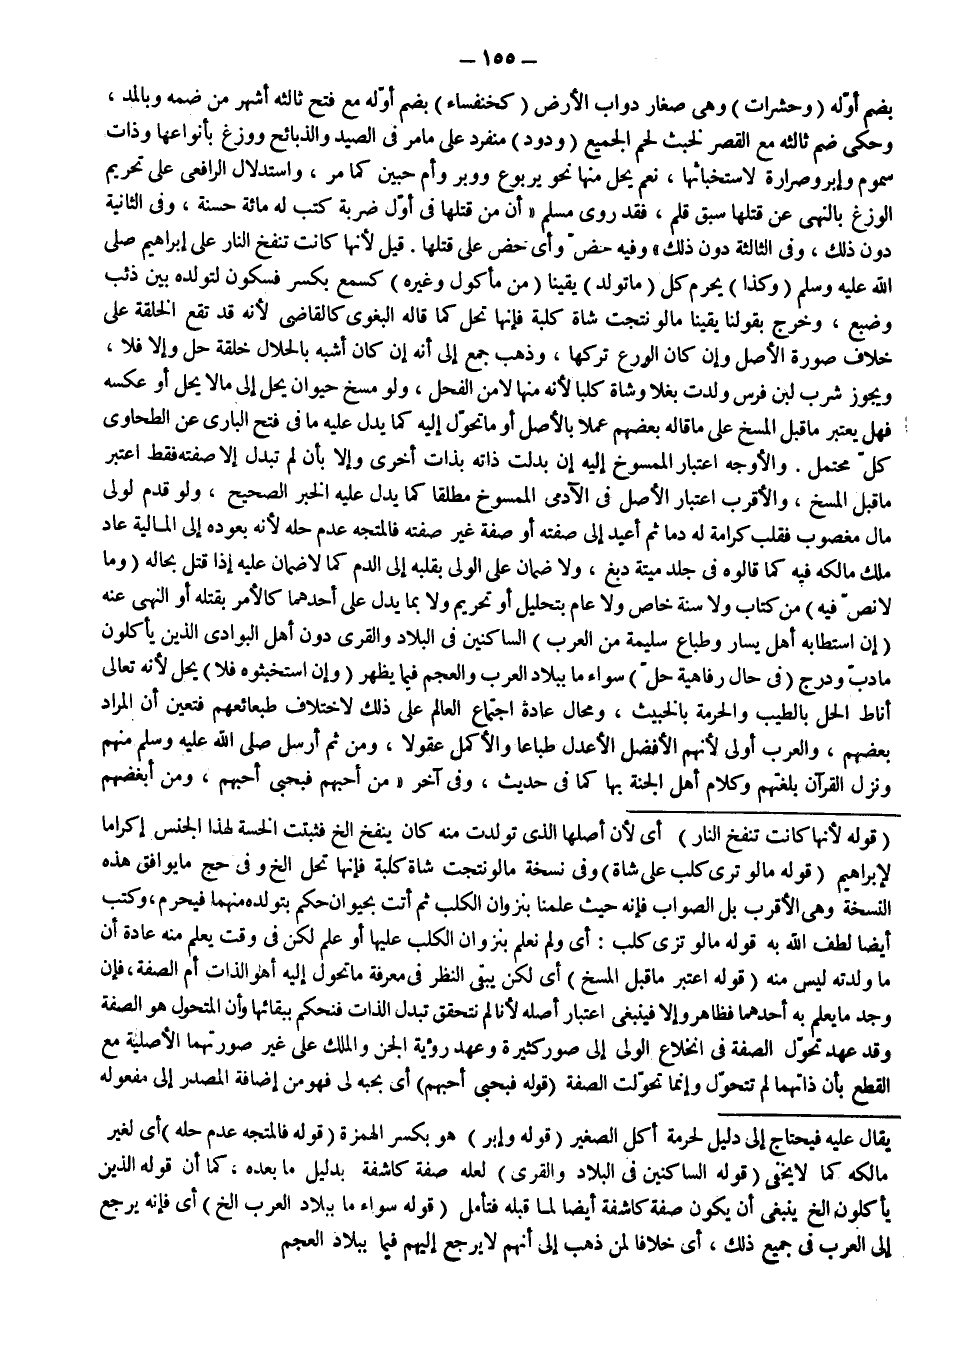 — ١٥٥ —
بضم أوّله ( وحشرات ) وهى صغار دواب الأرض ( كخنفساء ) بضم أوّله مع فتح ثالثه أشهر من ضمه وبالمد ،
وحكى ضم ثالثه مع القصر لخبث لحم الجميع ( ودود ) منفرد على مامر فى الصيد والذبائح ووزغ بأنواعها وذات
سموم وإبر وصرارة لاستخباثها ، نعم يحل منها نحو يربوع ووبر وأم حبين كما مر ، واستدلال الرافعى على تحريم
الوزغ بالنهى عن قتلها سبق قلم ، فقد روى مسلم « أن من قتلها فى أوّل ضربة كتب له مائة حسنة ، وفى الثانية
دون ذلك ، وفى الثالثة دون ذلك » وفيه حضّ وأى حض على قتلها . قيل لأنها كانت تنفخ النار على إبراهيم صلى
الله عليه وسلم ( وكذا ) يحرم كل ( ماتولد ) يقينا ( من مأكول وغيره ) كسمع بكسر فسكون لتولده بين ذئب
وضبع ، وخرج بقولنا يقينا مالو نتجت شاة كلبة فإنها تحل كما قاله البغوى كالقاضى لأنه قد تقع الخلقة على
خلاف صورة الأصل وإن كان الورع تركها ، وذهب جمع إلى أنه إن كان أشبه بالحلال خلقة حل وإلا فلا ،
ويجوز شرب لبن فرس ولدت بغلا وشاة كلبا لأنه منها لامن الفحل ، ولو مسخ حيوان يحل إلى مالا يحل أو عكسه
فهل يعتبر ماقبل المسخ على ماقاله بعضهم عملا بالأصل أو ماتحوّل إليه كما يدل عليه ما فى فتح البارى عن الطحاوى
كلّ محتمل . والأوجه اعتبار الممسوخ إليه إن بدلت ذاته بذات أخرى وإلا بأن لم تبدل إلا صفته فقط اعتبر
ماقبل المسخ ، والأقرب اعتبار الأصل فى الآدمى الممسوخ مطلقا كما يدل عليه الخبر الصحيح ، ولو قدم لولى
مال مغصوب فقلب كرامة له دما ثم أعيد إلى صفته أو صفة غير صفته فالمتجه عدم حله لأنه بعوده إلى المالية عاد
ملك مالكه فيه كما قالوه فى جلد ميتة دبغ ، ولا ضمان على الولى بقلبه إلى الدم كما لاضمان عليه إذا قتل بحاله ( وما
لانصّ فيه ) من كتاب ولا سنة خاص ولا عام بتحليل أو تحريم ولا بما يدل على أحدهما كالأمر بقتله أو النهى عنه
( إن استطابه أهل يسار وطباع سليمة من العرب ) الساكنين فى البلاد والقرى دون أهل البوادى الذين يأكلون
مادبّ ودرج ( فى حال رفاهية حلّ ) سواء ما ببلاد العرب والعجم فيما يظهر ( وإن استخبثوه فلا ) يحل لأنه تعالى
أناط الحل بالطيب والحرمة بالخبيث ، ومحال عادة اجتماع العالم على ذلك لاختلاف طبعائعهم فتعين أن المراد
بعضهم ، والعرب أولى لأنهم الأفضل الأعدل طباعا والأكمل عقولا ، ومن ثم أرسل صلى الله عليه وسلم منهم
ونزل القرآن بلغتهم وكلام أهل الجنة بها كما فى حديث ، وفى آخر « من أحبهم فبحبى أحبهم ، ومن أبغضهم
( قوله لأنها كانت تنفخ النار ) أى لأن أصلها الذى تولدت منه كان ينفخ الخ فثبتت الخسة لهذا الجنس إكراما
لإبراهيم ( قوله مالو ترى كلب على شاة ) وفى نسخة مالو نتجت شاة كلبة فإنها تحل الخ و فى حج مايوافق هذه
النسخة وهى الأقرب بل الصواب فإنه حيث علمنا بنزوان الكلب ثم أتت بحيوان حكم بتولده منهما فيحرم ، وكتب
أيضا لطف الله به قوله مالو نزى كلب : أى ولم نعلم بنزوان الكلب عليها أو علم لكن فى وقت يعلم منه عادة أن
ما ولدته ليس منه ( قوله اعتبر ماقبل المسخ ) أى لكن يبقى النظر فى معرفة ماتحول إليه أهو الذات أم الصفة ، فإن
وجد مايعلم به أحدهما فظاهر وإلا فينبغى اعتبار أصله لأنا لم نتحقق تبدل الذات فنحكم ببقائها وأن المتحول هو الصفة
وقد عهد تحوّل الصفة فى انخلاع الولى إلى صور كثيرة وعهد رؤية الجن والملك على غير صورتهما الأصلية مع
القطع بأن ذاتهما لم تتحوّل وإنما تحوّلت الصفة ( قوله فبحبى أحبهم ) أى بحبه لى فهو من إضافة المصدر إلى مفعوله
يقال عليه فيحتاج إلى دليل لحرمة أكل الصغير ( قوله وإبر ) هو بكسر الهمزة ( قوله فالمتجه عدم حله ) أى لغير
مالكه كما لايخفى ( قوله الساكنين فى البلاد والقرى ) لعله صفة كاشفة بدليل ما بعده ، كما أن قوله الذين
يأكلون الخ ينبغى أن يكون صفة كاشفة أيضا لما قبله فتأمل ( قوله سواء ما ببلاد العرب الخ ) أى فإنه يرجع
إلى العرب فى جميع ذلك ، أى خلافا لمن ذهب إلى أنهم لايرجع إليهم فيما ببلاد العجم